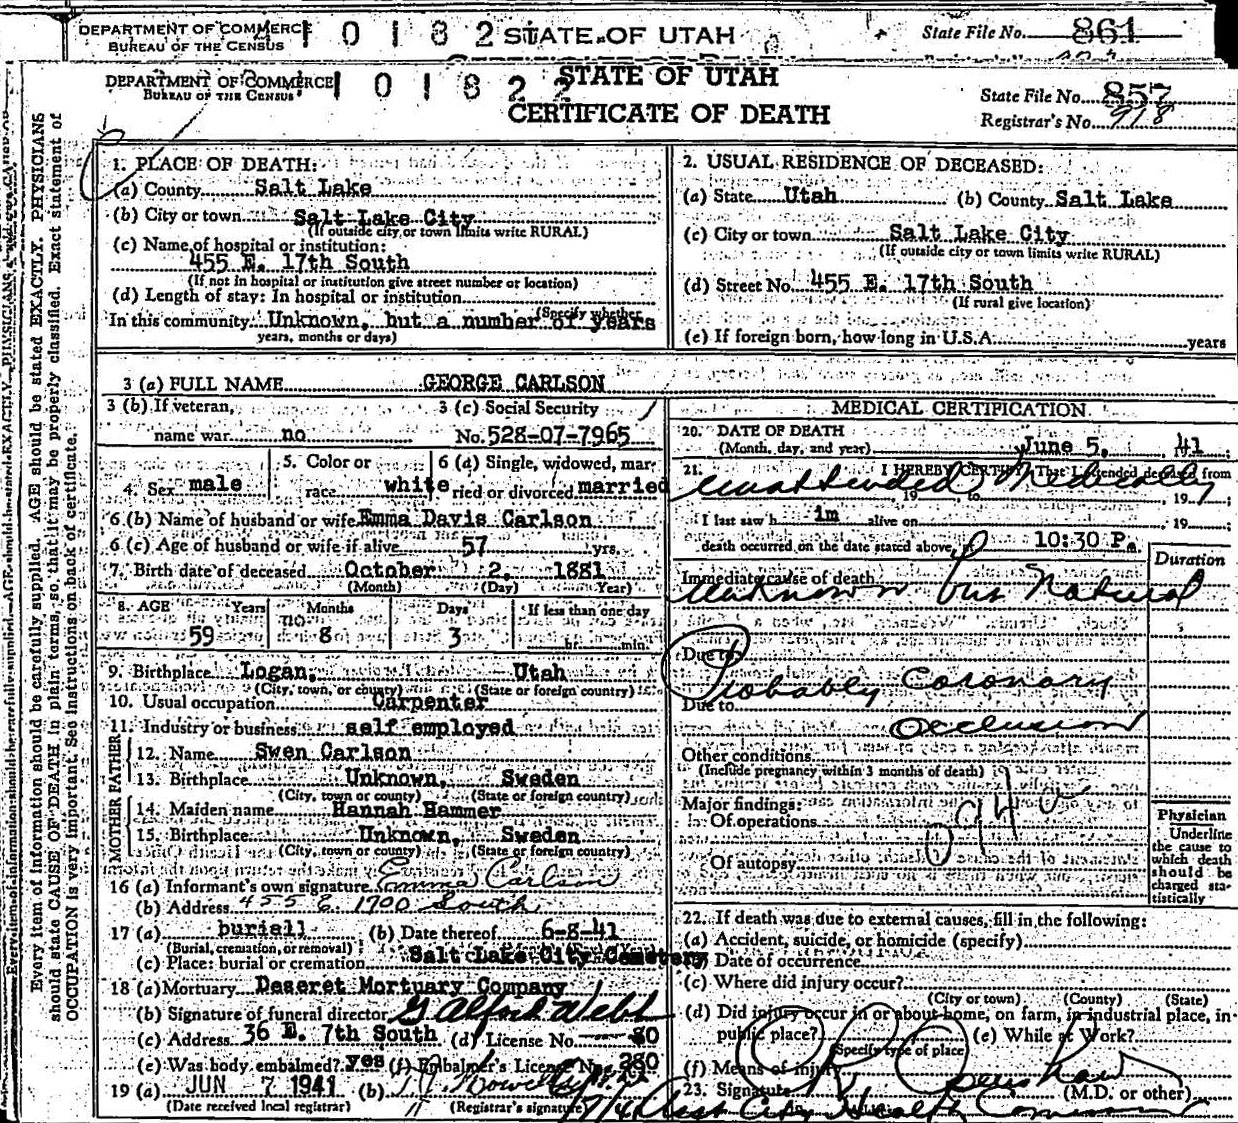 DEPARTMENT OF COMMERCE
BUREAU OF THE CENSUS
1 0 1 8 2
STATE OF UTAH
State File No. 861
DEPARTMENT OF COMMERCE
BUREAU OF THE CENSUS
1 0 1 8 2 2
STATE OF UTAH
CERTIFICATE OF DEATH
State File No. 857
Registrar's No. 918
Every item of information should be carefully supplied. AGE should be stated EXACTLY. PHYSICIANS
should state CAUSE OF DEATH in plain terms, so that it may be properly classified. Exact statement of
OCCUPATION is very important. See instructions on back of certificate.
1. PLACE OF DEATH:
(a) County Salt Lake
(b) City or town Salt Lake City
(If outside city or town limits write RURAL)
(c) Name of hospital or institution:
455 E. 17th South
(If not in hospital or institution give street number or location)
(d) Length of stay: In hospital or institution
(Specify whether
In this community Unknown, but a number of years
years, months or days)
2. USUAL RESIDENCE OF DECEASED:
(a) State Utah (b) County Salt Lake
(c) City or town Salt Lake City
(If outside city or town limits write RURAL)
(d) Street No. 455 E. 17th South
(If rural give location)
(e) If foreign born, how long in U.S.A. years
3 (a) FULL NAME GEORGE CARLSON
3 (b) If veteran, 3 (c) Social Security
name war no No. 528-07-7965
4. Sex male
5. Color or race white
6 (a) Single, widowed, married or divorced married
6 (b) Name of husband or wife Emma Davis Carlson
6 (c) Age of husband or wife if alive 57 yrs.
7. Birth date of deceased October 2, 1881
(Month) (Day) (Year)
8. AGE Years Months Days If less than one day
59 8 3 hr. min.
9. Birthplace Logan, Utah
(City, town, or county) (State or foreign country)
10. Usual occupation Carpenter
11. Industry or business self employed
FATHER
12. Name Swen Carlson
13. Birthplace Unknown, Sweden
(City, town or county) (State or foreign country)
MOTHER
14. Maiden name Hannah Hammer
15. Birthplace Unknown, Sweden
(City, town or county) (State or foreign country)
16 (a) Informant's own signature Emma Carlson
(b) Address 455 E. 1700 South
17 (a) burial (b) Date thereof 6-8-41
(Burial, cremation, or removal)
(c) Place: burial or cremation Salt Lake City Cemetery
18 (a) Mortuary Deseret Mortuary Company
(b) Signature of funeral director G Alford Webb
(c) Address 36 E. 7th South (d) License No. 80
(e) Was body embalmed? yes (f) Embalmer's License No. 280
19 (a) JUN 7 1941 (b)
(Date received local registrar) (Registrar's signature)
MEDICAL CERTIFICATION
20. DATE OF DEATH
(Month, day, and year) June 5, 1941
21. I HEREBY CERTIFY, That I attended deceased from
unattended Medically
, 19 to , 19 ;
I last saw h im alive on , 19 ;
death occurred on the date stated above, 10:30 P.
Duration
Immediate cause of death
Unknown but Natural
Due to
Probably Coronary
Due to
Occlusion
Other conditions
(Include pregnancy within 3 months of death)
Major findings:
Of operations
094
Of autopsy
Physician
Underline
the cause to
which death
should be
charged sta-
tistically
22. If death was due to external causes, fill in the following:
(a) Accident, suicide, or homicide (specify)
(b) Date of occurrence
(c) Where did injury occur?
(City or town) (County) (State)
(d) Did injury occur in or about home, on farm, in industrial place, in
public place? (e) While at Work?
(Specify type of place)
(f) Means of injury
23. Signature (M.D. or other)
Asst City Health